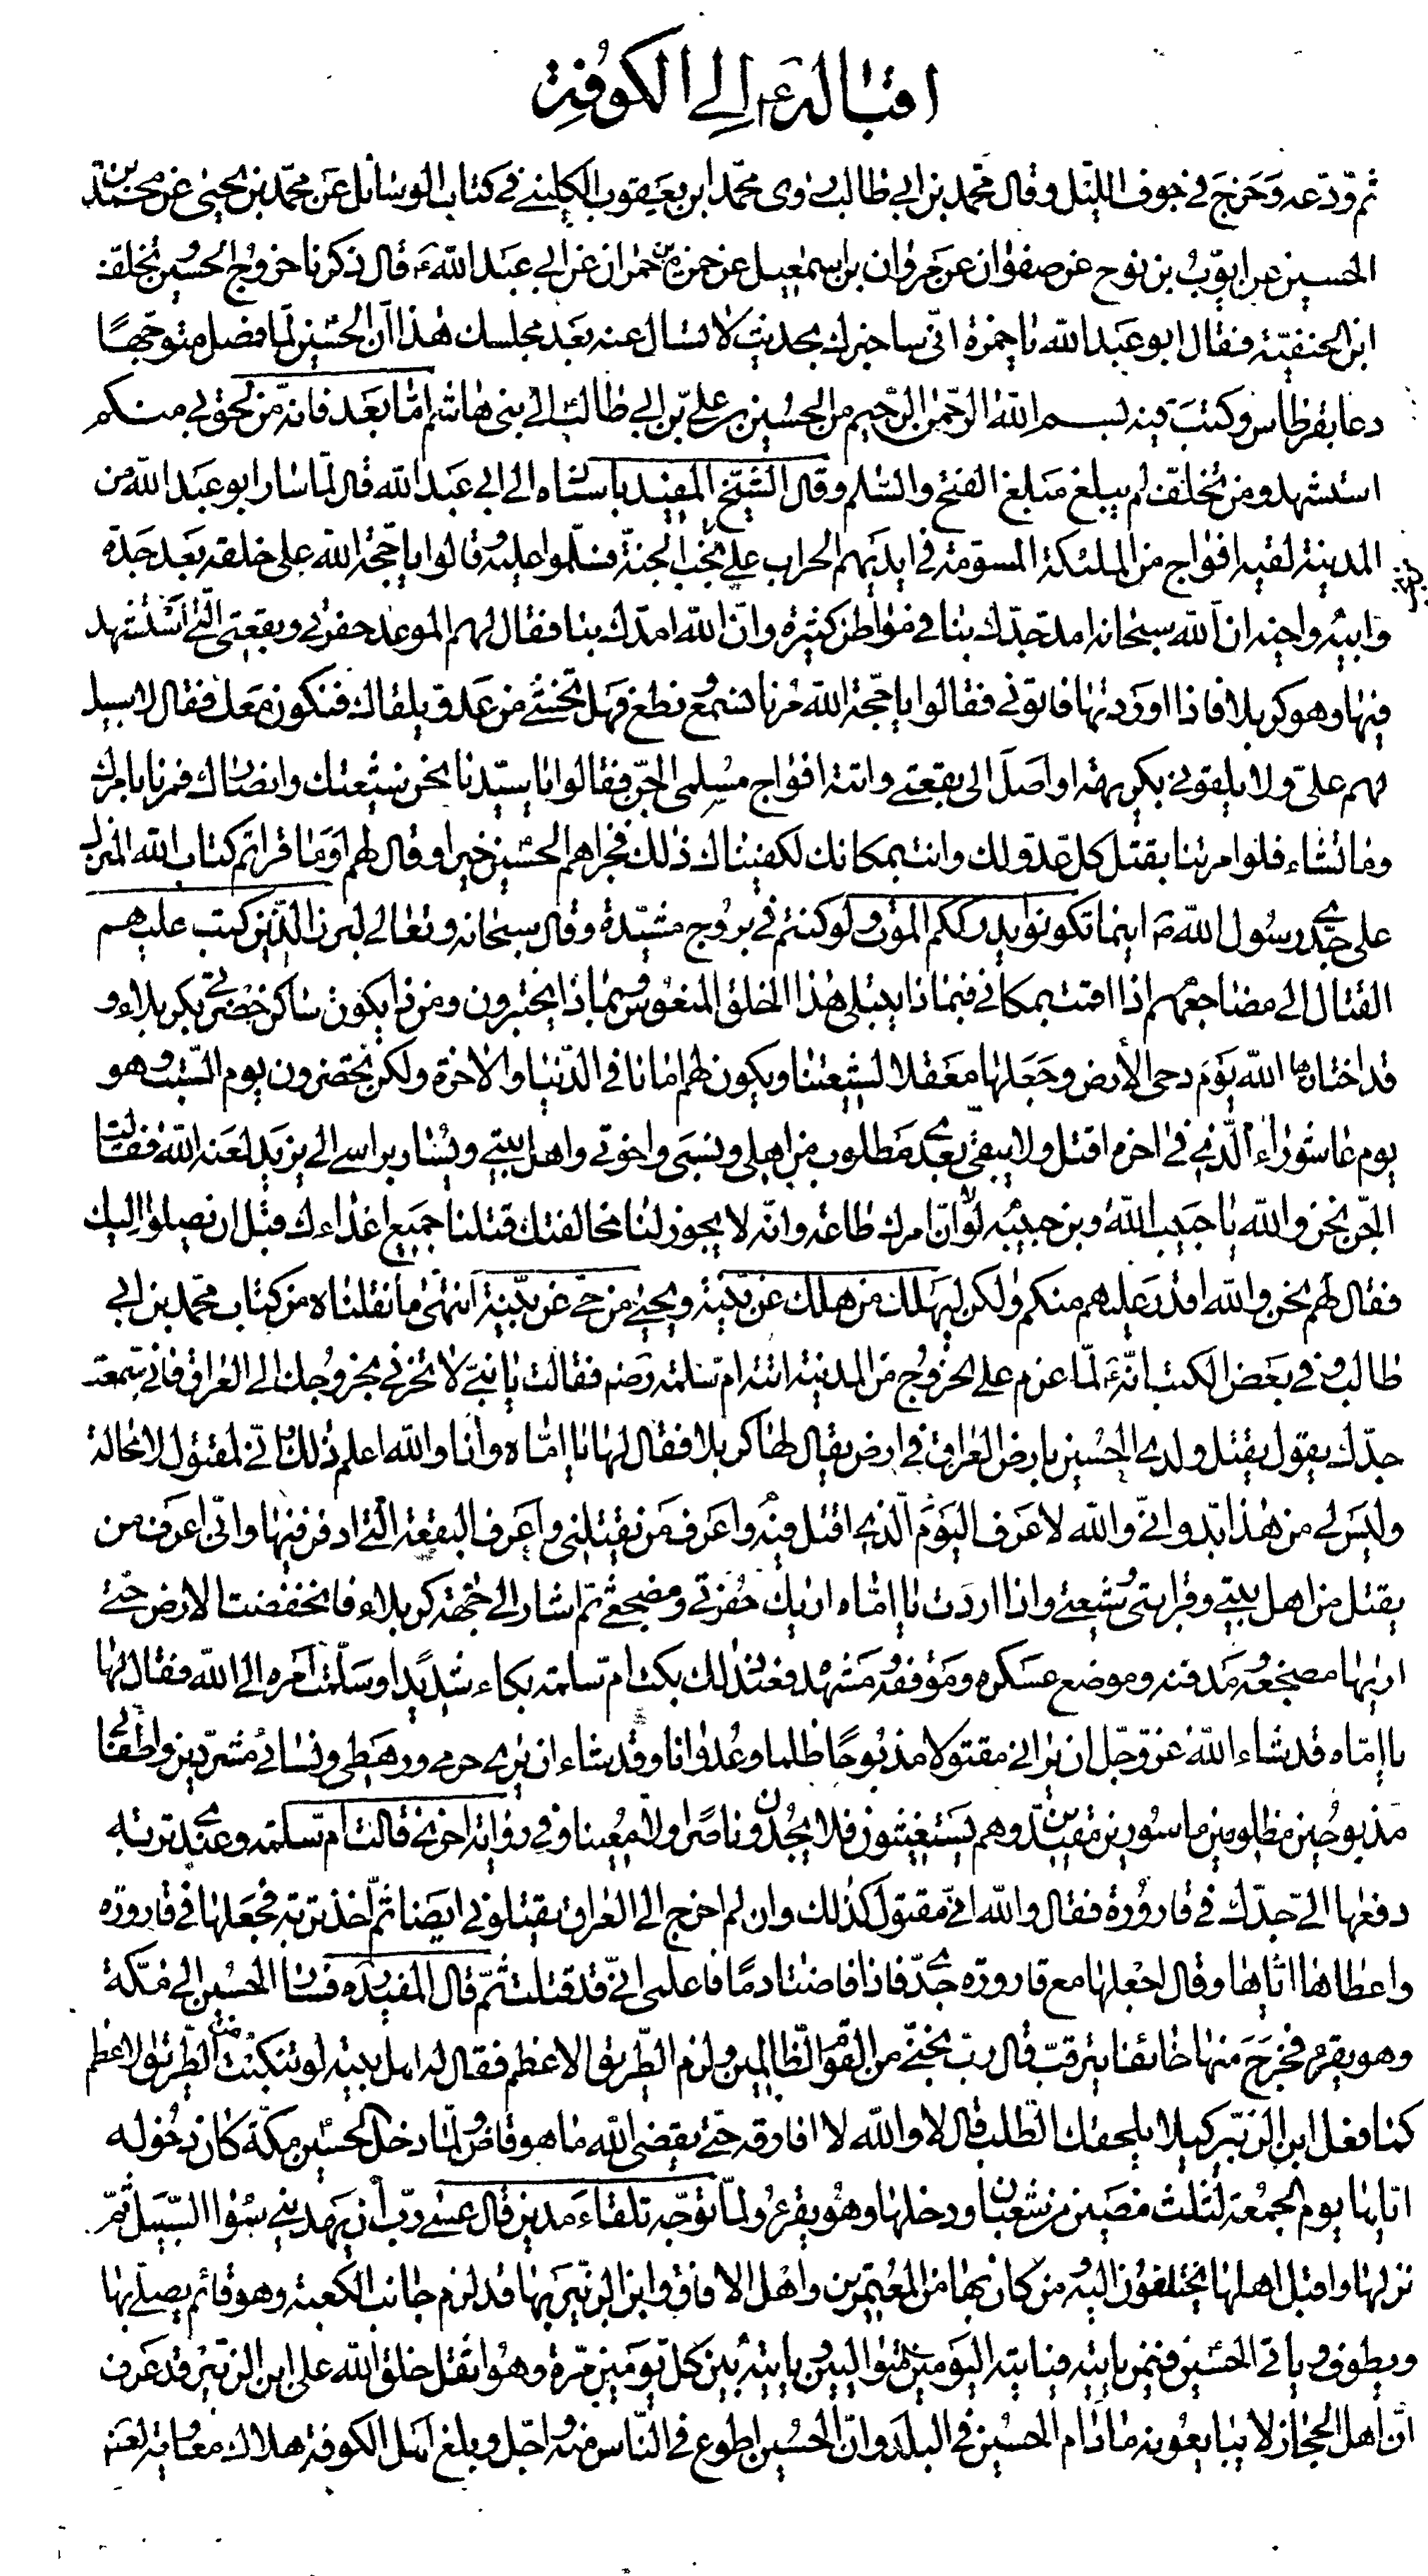 اقباله ع الى الكوفة
ثم ودّعه وخرج في جوف الليل وقال محمد بن ابي طالب روى محمد ابن يعقوب الكليني في كتاب الوسائل عن محمد بن يحيى عن محمد بن
الحسين عن ايوب بن نوح عن صفوان عن مروان بن اسمعيل عن حمزة بن حمران عن ابي عبد الله ع قال ذكرنا خروج الحسين وتخلف
ابن الحنفية فقال ابو عبد الله يا حمزة اني ساخبرك بحديث لا تسال عنه بعد مجلسك هذا ان الحسين لما فصل متوجها
دعا بقرطاس وكتب فيه بسم الله الرحمن الرحيم من الحسين بن علي بن ابي طالب الى بني هاشم اما بعد فانه من لحق بي منكم
استشهد ومن تخلف لم يبلغ مبلغ الفتح والسلم وقال الشيخ المفيد باسناه الى ابي عبد الله قال لما سار ابو عبد الله من
المدينة لقيه افواج من الملئكة المسومة في ايديهم الحراب على نجب الجنة فسلموا عليه وقالوا يا حجة الله على خلقه بعد جده
وابيه واخيه ان الله سبحانه امد جدك بنا في مواطن كثيرة وان الله امدك بنا فقال لهم الموعد حفرتي وبقعتي التي استشهد
فيها وهو كربلا فاذا اوردتها فاتوني فقالوا يا حجة الله مرنا نسمع ونطع فهل تخشى من عدو يلقاك فنكون معك فقال لا سبيل
لهم علي ولا يلقوني بكريهة او اصل الى بقعتي واتته افواج مسلمي الجن فقالوا يا سيدنا نحن شيعتك وانصارك فمرنا بامرك
وما تشاء فلو امرتنا بقتل كل عدو لك وانت بمكانك لكفيناك ذلك فجزاهم الحسين خيرا وقال لهم اوما قراتم كتاب الله المنزل
على جدي رسول الله ص اينما تكونوا يدرككم الموت ولو كنتم في بروج مشيدة وقال سبحانه وتعالى لبرز الذين كتب عليهم
القتال الى مضاجعهم اذا اقمت بمكاني فبماذا يبتلى هذا الخلق المتعوس وبماذا يختبرون ومن ذا يكون ساكن حضرتي بكربلاء و
قد اختارها الله يوم دحى الأرض وجعلها معقلا لشيعتنا ويكون لهم امانا في الدنيا والاخرة ولكن تحضرون يوم السبت وهو
يوم عاشوراء الذي في اخره اقتل ولا يبقى بعدي مطلوب من اهلي ونسبي واخوتي واهل بيتي ويسار براسي الى يزيد لعنه الله فقالت
الجن نحن والله يا حبيب الله وبن حبيبه لولا ان امرك طاعة وانه لا يجوز لنا مخالفتك قتلنا جميع اعداءك قبل ان يصلوا اليك
فقال لهم نحن والله اقدر عليهم منكم ولكن ليهلك من هلك عن بينة ويحيى من حي عن بينة انتهى ما نقلناه من كتاب محمد بن ابي
طالب وفي بعض الكتب انه ع لما عزم على الخروج من المدينة اتته ام سلمة رض فقالت يا بني لا تحزني بخروجك الى العراق فاني سمعت
جدك يقول يقتل ولدي الحسين بارض العراق في ارض يقال لها كربلا فقال لها يا اماه وانا والله اعلم ذلك واني لمقتول لا محالة
وليس لي من هذا بد واني والله لاعرف اليوم الذي اقتل فيه واعرف من يقتلني واعرف البقعة التي ادفن فيها واني اعرف من
يقتل من اهل بيتي وقرابتي وشيعتي وان اردت يا اماه اريك حفرتي ومضجعي ثم اشار الى جهة كربلاء فانخفضت الارض حتى
اريها مضجعه ومدفنه وموضع عسكره وموقفه ومشهده فعند ذلك بكت ام سلمة بكاء شديدا وسلمت امره الى الله فقال لها
يا اماه قد شاء الله عز وجل ان يراني مقتولا مذبوحا ظلما وعدوانا وقد شاء ان يرى حرمي ورهطي ونسائي مشردين واطفالي
مذبوحين مظلومين ماسورين مقيدين وهم يستغيثون فلا يجدون ناصرا ولا معينا وفي رواية اخرى قالت ام سلمة وعندي تربة
دفعها الي جدك في قارورة فقال والله اني مقتول كذلك وان لم اخرج الى العراق يقتلوني ايضا ثم اخذ تربة فجعلها في قارورة
واعطاها اياها وقال اجعلها مع قارورة جدي فاذا فاضتا دما فاعلمي اني قد قتلت ثم قال المفيد ره فسار الحسين الى مكة
وهو يقرء فخرج منها خائفا يترقب قال رب نجني من القوم الظالمين ولزم الطريق الاعظم فقال له اهل بيته لو تنكبت عن الطريق الاعظم
كما فعل ابن الزبير كيلا يلحقك الطلب قال لا والله لا افارقه حتى يقضي الله ما هو قاض ولما دخل الحسين مكة كان دخوله
اياها يوم الجمعة لثلث مضين من شعبان ودخلها وهو يقرء ولما توجه تلقاء مدين قال عسى رب ان يهديني سواء السبيل ثم
نزلها واقبل اهلها يختلفون اليه من كان بها من المعتمرين واهل الافاق وابن الزبير بها قد لزم جانب الكعبة وهو قائم يصلي بها
ويطوف وياتي الحسين فيمن ياتيه فياتيه اليومين المتواليين وياتيه بين كل يومين مرة وهو اثقل خلق الله على ابن الزبير قد عرف
ان اهل الحجاز لا يبايعونه مادام الحسين في البلد وان الحسين اطوع في الناس منه واجل وبلغ اهل الكوفة هلاك معاوية لعنه